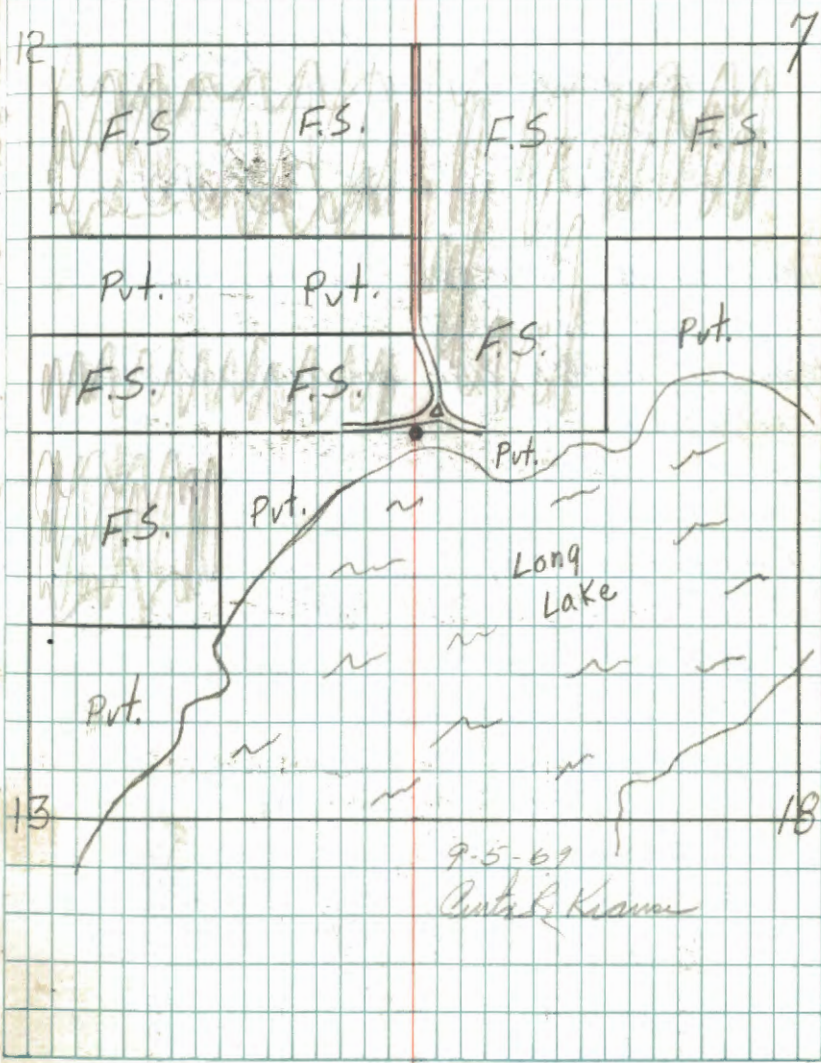 12 7
F.S F.S. F.S. F.S.
Pvt. Pvt.
F.S. Pvt.
F.S. F.S.
Pvt.
F.S. Pvt.
Long
Lake
Pvt.
13 18
9-5-69
Curtis R Krause